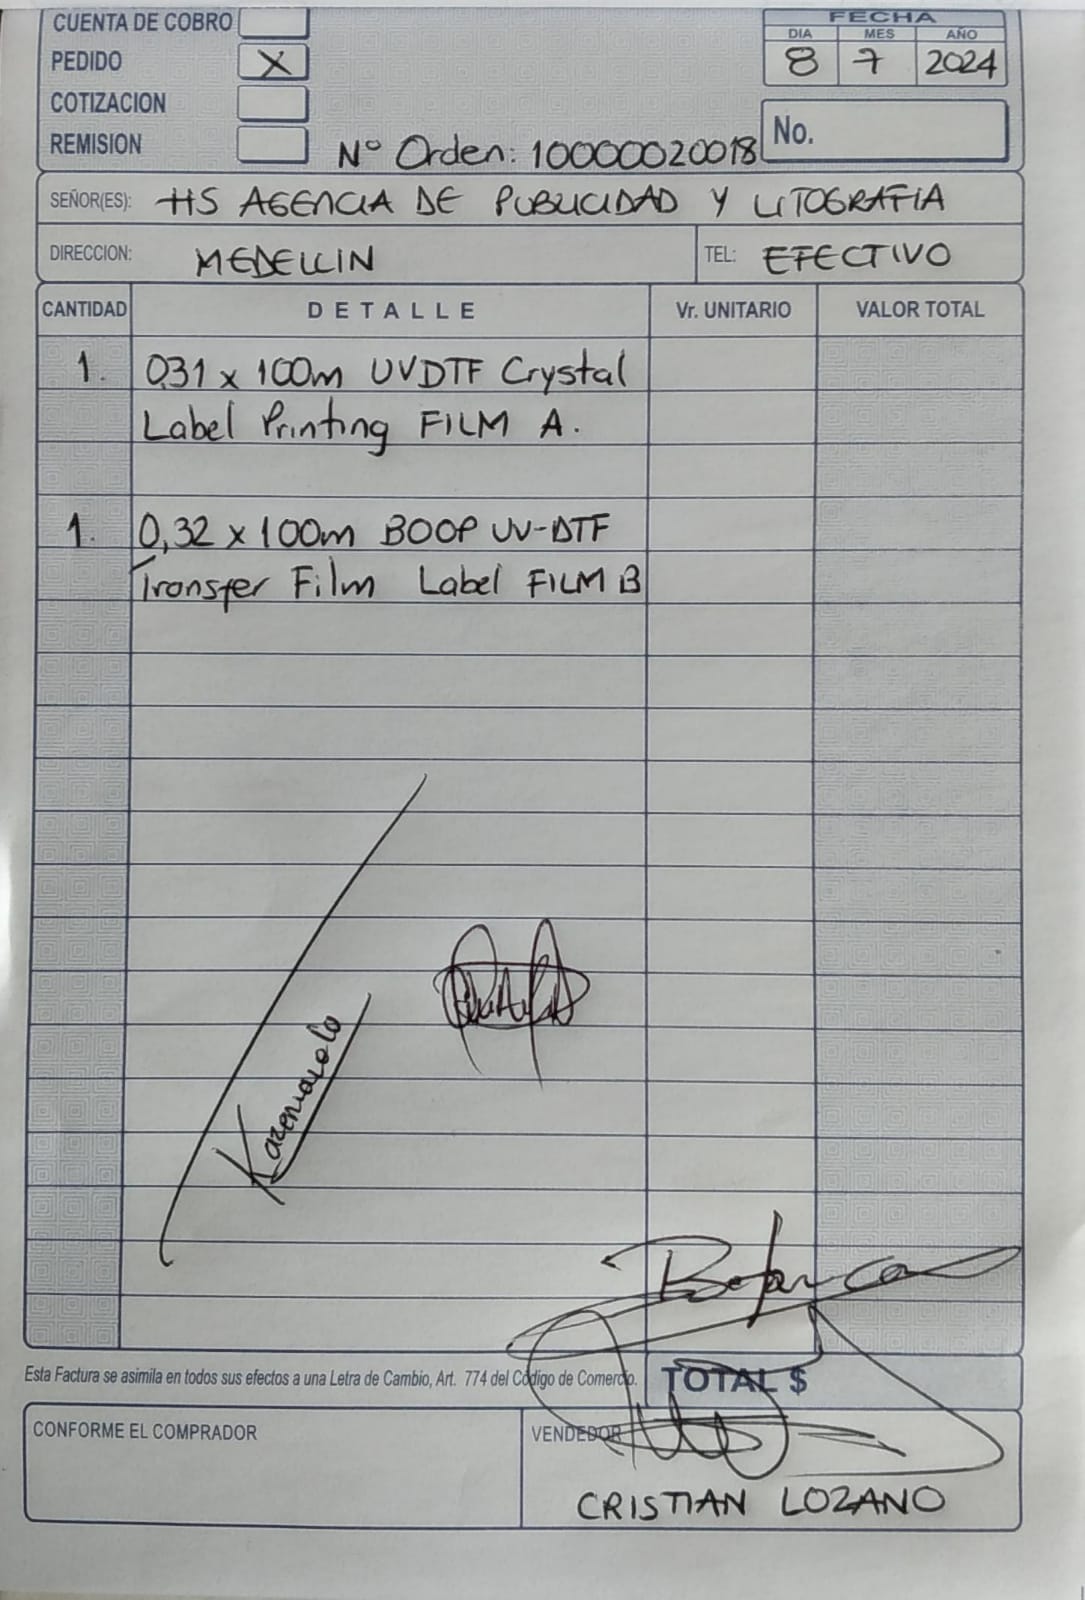 CUENTA DE COBRO
PEDIDO X
COTIZACION
REMISION
FECHA
DIA MES AÑO
8 7 2024
No.
N° Orden: 10000020018
SEÑOR(ES): HS AGENCIA DE PUBLICIDAD Y LITOGRAFIA
DIRECCION: MEDELLIN TEL: EFECTIVO
CANTIDAD DETALLE Vr. UNITARIO VALOR TOTAL
1. 0,31 x 100m UVDTF Crystal
Label Printing FILM A.
1. 0,32 x 100m BOOP UV-DTF
Transfer Film Label FILM B
Esta Factura se asimila en todos sus efectos a una Letra de Cambio, Art. 774 del Código de Comercio.
TOTAL $
CONFORME EL COMPRADOR
VENDEDOR
CRISTIAN LOZANO